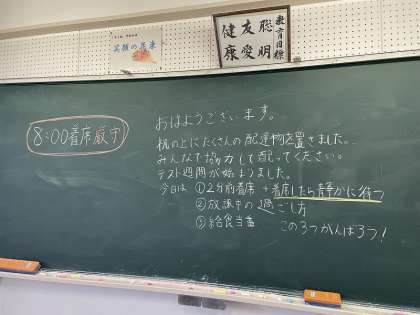 教育目標
聡明
友愛
健康
笑顔の花束
8:00着席厳守
おはようございます。
机の上にたくさんの配達物を置きました。
みんなで協力して配ってください。
テスト週間が始まりました。
今日は ①2分前着席 +着席したら静かに待つ
②放課中の過ごし方
③給食当番 この3つがんばろう!